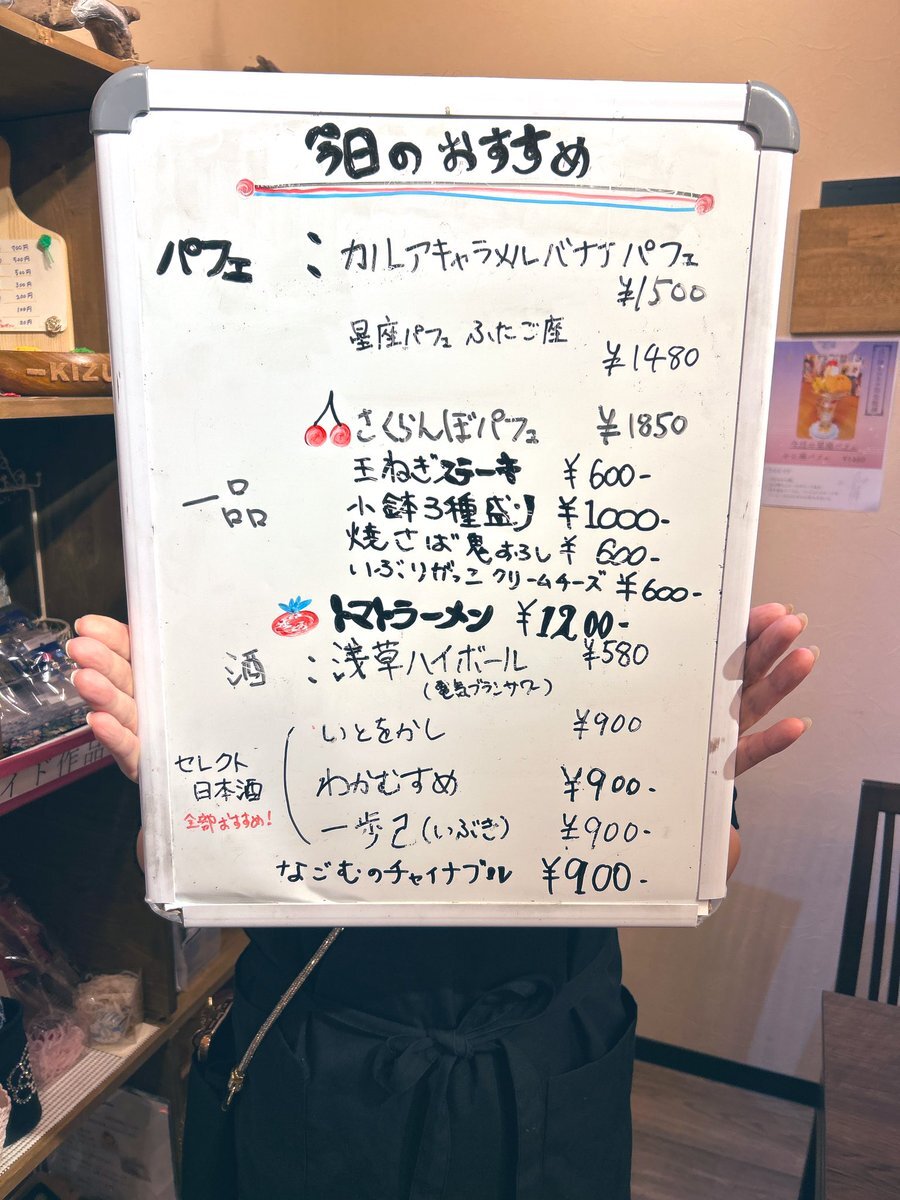 今日のおすすめ
パフェ : カルアキャラメルバナナパフェ
¥1500
星座パフェ ふたご座
¥1480
さくらんぼパフェ ¥1850
玉ねぎステーキ ¥600-
一品 小鉢3種盛り ¥1000-
焼さば鬼おろし ¥600-
いぶりがっこクリームチーズ ¥600-
トマトラーメン ¥1200-
酒 : 浅草ハイボール ¥580
(電気ブランサワー)
いとをかし ¥900
セレクト
日本酒
わかむすめ ¥900-
全部おすすめ!
一歩己(いぶき) ¥900-
なごむのチャイナブル ¥900-
700円
500円
500円
300円
200円
100円
-KIZU
イド作品